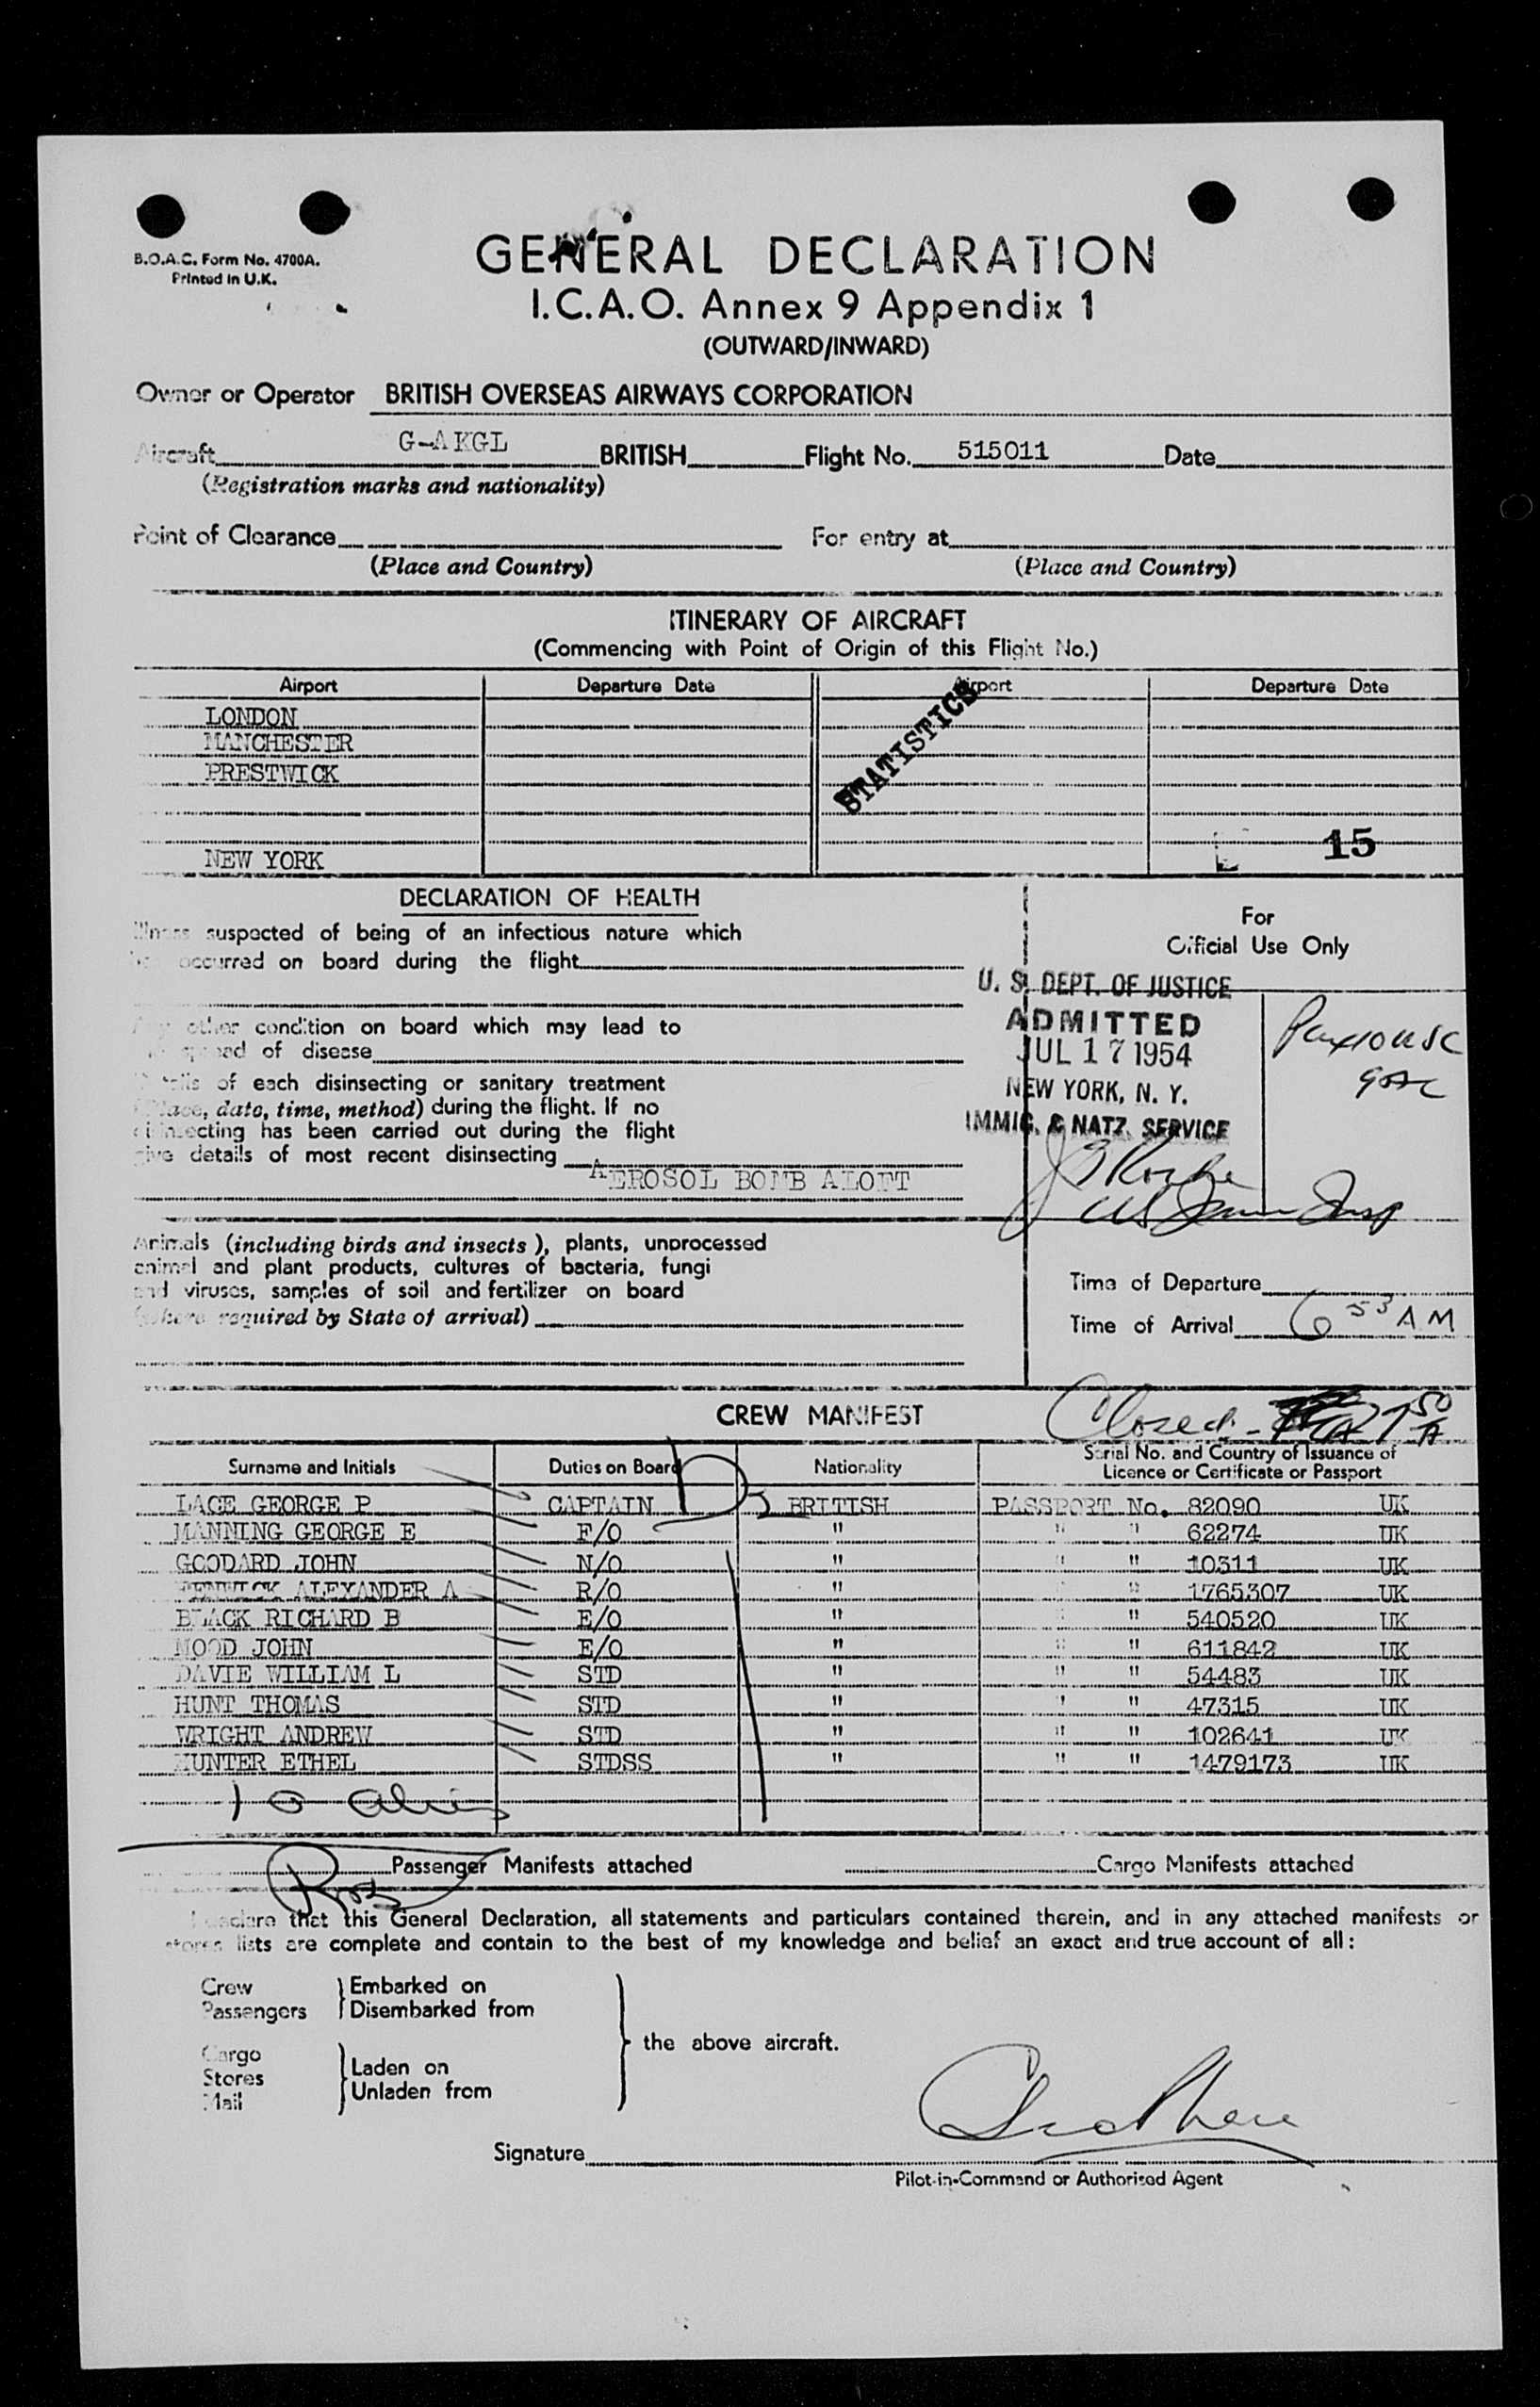 B.O.A.C. Form No. 4700A.
Printed in U.K.
GENERAL DECLARATION
I.C.A.O. Annex 9 Appendix 1
(OUTWARD/INWARD)
Owner or Operator BRITISH OVERSEAS AIRWAYS CORPORATION
Aircraft G-AKGL BRITISH Flight No. 515011 Date
(Registration marks and nationality)
Point of Clearance For entry at
(Place and Country) (Place and Country)
ITINERARY OF AIRCRAFT
(Commencing with Point of Origin of this Flight No.)
Airport Departure Date Airport Departure Date
LONDON
MANCHESTER
PRESTWICK
STATISTICS
15
NEW YORK
DECLARATION OF HEALTH
Illness suspected of being of an infectious nature which
has occurred on board during the flight
Any other condition on board which may lead to
the spread of disease
Details of each disinsecting or sanitary treatment
(Place, date, time, method) during the flight. If no
disinsecting has been carried out during the flight
give details of most recent disinsecting
AEROSOL BOMB ALOFT
For
Official Use Only
U. S. DEPT. OF JUSTICE
ADMITTED
JUL 17 1954
NEW YORK, N. Y.
IMMIG. & NATZ. SERVICE
Animals (including birds and insects), plants, unprocessed
animal and plant products, cultures of bacteria, fungi
and viruses, samples of soil and fertilizer on board
(where required by State of arrival)
Time of Departure
Time of Arrival 6 53 AM
Closed - 7 50 A
CREW MANIFEST
Surname and Initials Duties on Board Nationality Serial No. and Country of Issuance of
Licence or Certificate or Passport
LACE GEORGE P CAPTAIN BRITISH PASSPORT No. 82090 UK
MANNING GEORGE E F/O " " " 62274 UK
GOODARD JOHN N/O " " " 10311 UK
FENWICK ALEXANDER A R/O " " " 1765307 UK
BLACK RICHARD B E/O " " " 540520 UK
MOOD JOHN E/O " " " 611842 UK
DAVIE WILLIAM L STD " " " 54483 UK
HUNT THOMAS STD " " " 47315 UK
WRIGHT ANDREW STD " " " 102641 UK
HUNTER ETHEL STDSS " " " 1479173 UK
10
Passenger Manifests attached Cargo Manifests attached
I declare that this General Declaration, all statements and particulars contained therein, and in any attached manifests or
stores lists are complete and contain to the best of my knowledge and belief an exact and true account of all:
Crew Embarked on
Passengers Disembarked from
the above aircraft.
Cargo
Stores Laden on
Mail Unladen from
Signature
Pilot-in-Command or Authorised Agent